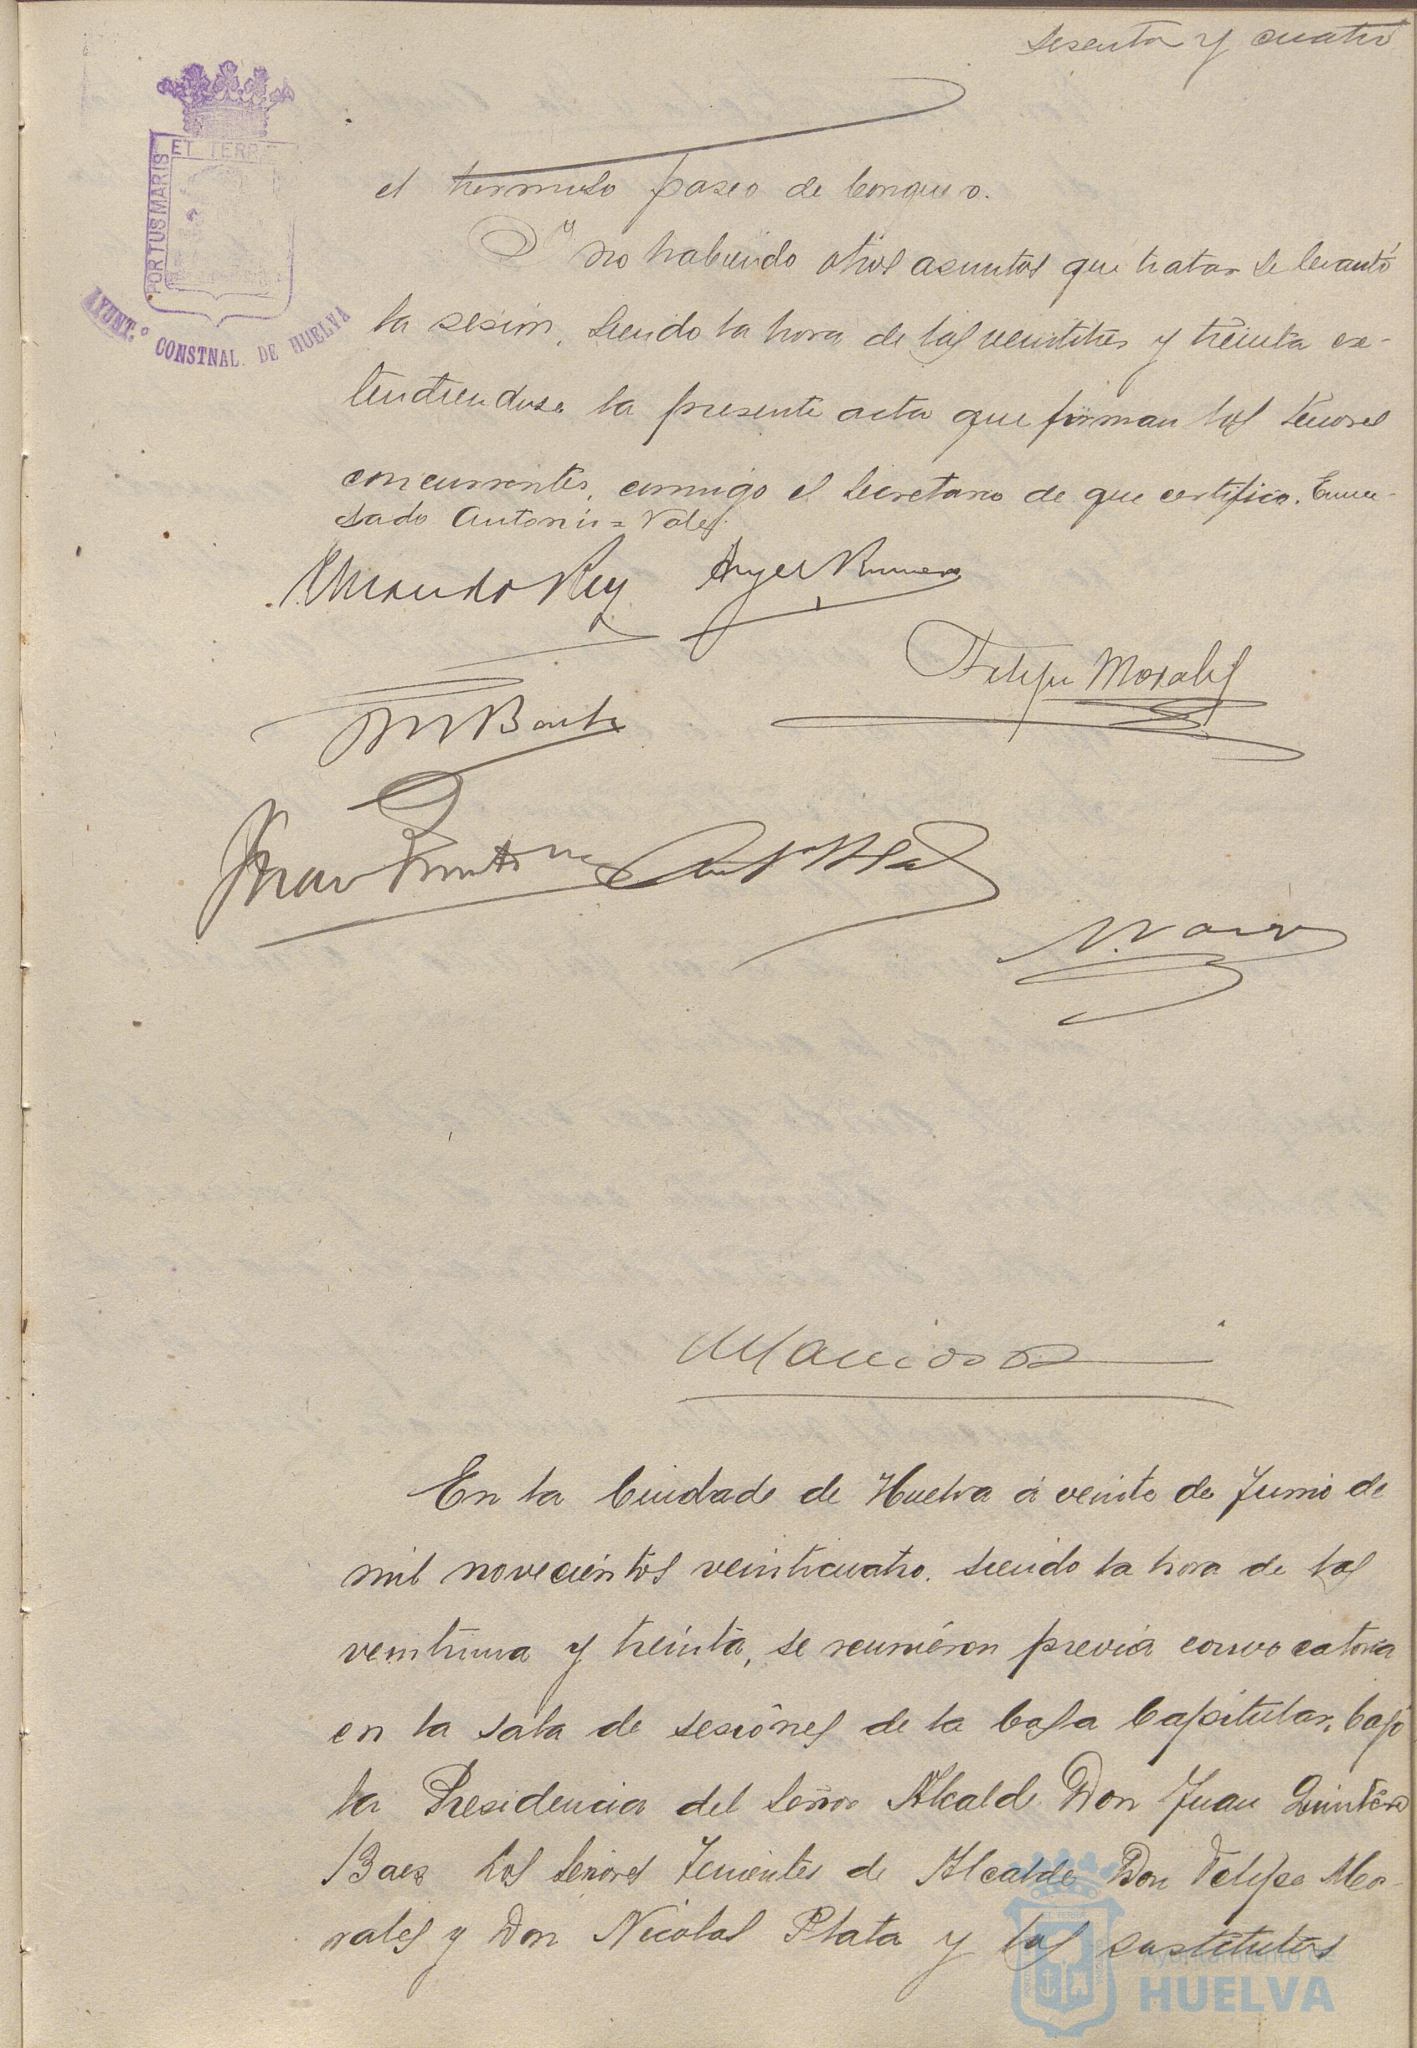 sesenta y cuatro
ET TERRÆ
PORTUS MARIS
AYUNT.º CONSTNAL. DE HUELVA
el hermoso paseo de Conquero.
Y no habiendo otros asuntos que tratar se levantó
la sesion, siendo la hora de las veintitres y treinta ex-
tendiendose la presente acta que firman los señores
concurrentes, conmigo el Secretario de que certifico. Enmen-
dado Antonio = Vale.
Rey Angel Romero
Felipe Morales
Juan Quintero
En la Ciudade de Huelva á veinte de Junio de
mil novecientos veinticuatro. siendo la hora de las
veintiuna y treinta, se reunieron previa convocatoria
en la sala de sesiones de la Casa Capitular, bajo
la Presidencia del Señor Alcalde Don Juan Quintero
Baez los Señores Tenientes de Alcalde Don Felipe Mo-
rales y Don Nicolas Plata y los sustitutos
Ayuntamiento de
HUELVA